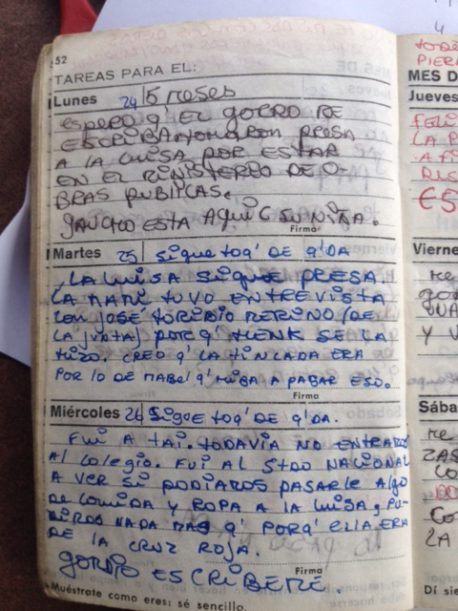 52
TAREAS PARA EL:
Lunes 24 5 MESES
ESPERO Q' EL GORRO DE
PRESA
A LA LUISA POR ESTAR
EN EL MINISTERIO DE O-
BRAS PUBLICAS.
GAUCHO ESTA AQUI C SUNITA.
Firma
Martes 25 SIGUE TOQ' DE Q'DA
LA LUISA SIGUE PRESA.
LA MAMI TUVO ENTREVISTA
CON JOSÉ TORIBIO MERINO (DE
LA JUNTA) PORQ' HENK SE LA
HIZO. CREO Q' LA TINCADA ERA
POR LO DE MABEL Q' IBA A PABAR ESO.
Firma
Miércoles 26 SIGUE TOQ' DE Q'DA.
FUI A TAI. TODAVIA NO ENTRAMOS
AL COLEGIO. FUI AL STDO NACIONAL
A VER SI PODIAMOS PASARLE ALGO
DE COMIDA Y ROPA A LA LUISA, PU-
DIMOS NADA MAS Q' PORQ' ELLA ERA
DE LA CRUZ ROJA.
GORDO ESCRIBEME.
Firma
Muéstrate como eres: sé sencillo.
MES D
Jueves
€5
Vierne
Y V
Sába
LA
Di sie